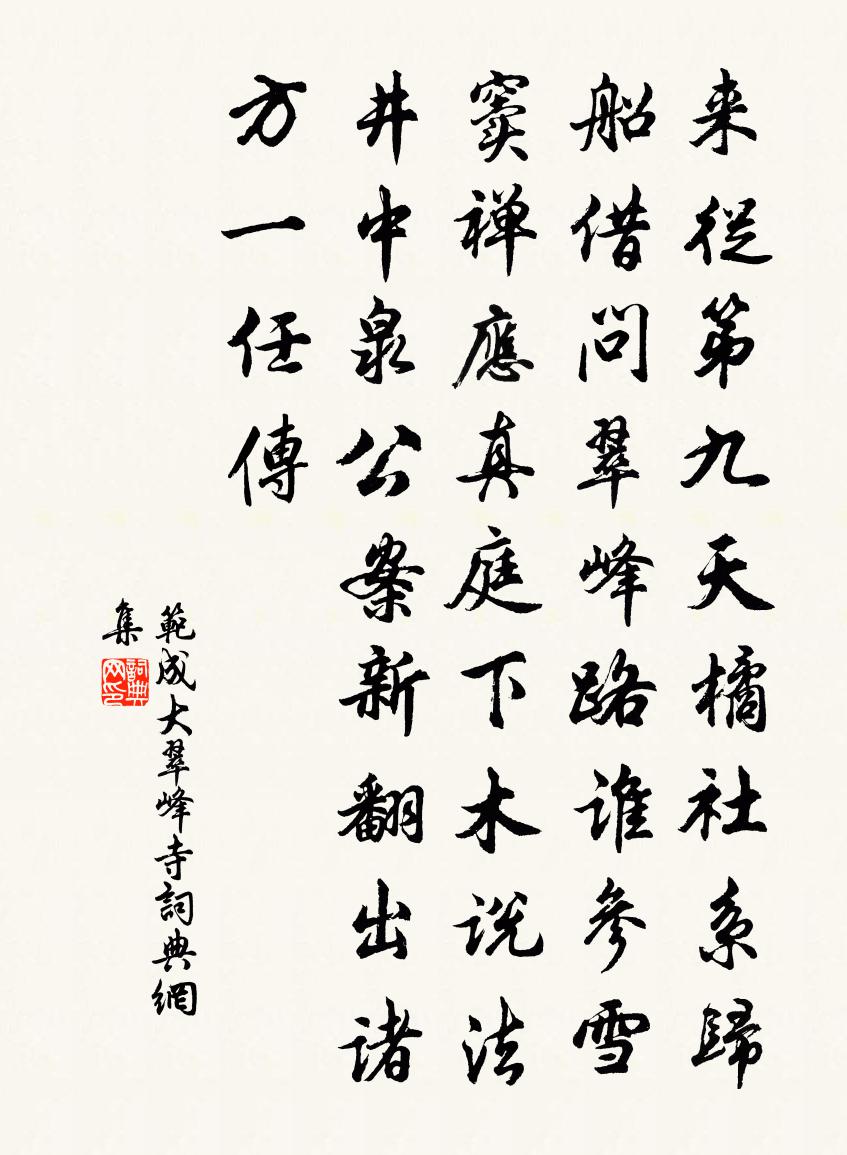 来從第九天橘社系歸
船借問翠峰路谁參雪
窦禅應真庭下木说法
井中泉公案新翻出诸
方一任傳
範成大翠峰寺詞典網
集
詞典网印